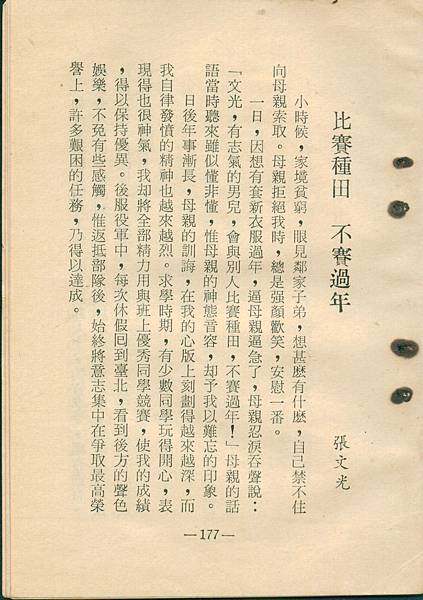 比賽種田　不賽過年
張文光
小時候，家境貧窮，眼見鄰家子弟，想甚麽有什麽，自己禁不住
向母親索取。母親拒絕我時，總是强顏歡笑，安慰一番。
一日，因想有套新衣服過年，逼母親逼急了，母親忍淚吞聲說：
「文光，有志氣的男兒，會與別人比賽種田，不賽過年！」母親的話
語當時聽來雖似懂非懂，惟母親的神態音容，却予我以難忘的印象。
日後年事漸長，母親的訓誨，在我的心版上刻劃得越來越深，而
我自律發憤的精神也越來越烈。求學時期，有少數同學玩得開心，表
現得也很神氣，我却將全部精力用與班上優秀同學競賽，使我的成績
，得以保持優異。後服役軍中，每次休假囘到臺北，看到後方的聲色
娛樂，不免有些感觸，惟返抵部隊後，始終將意志集中在爭取最高榮
譽上，許多艱困的任務，乃得以達成。
—177—